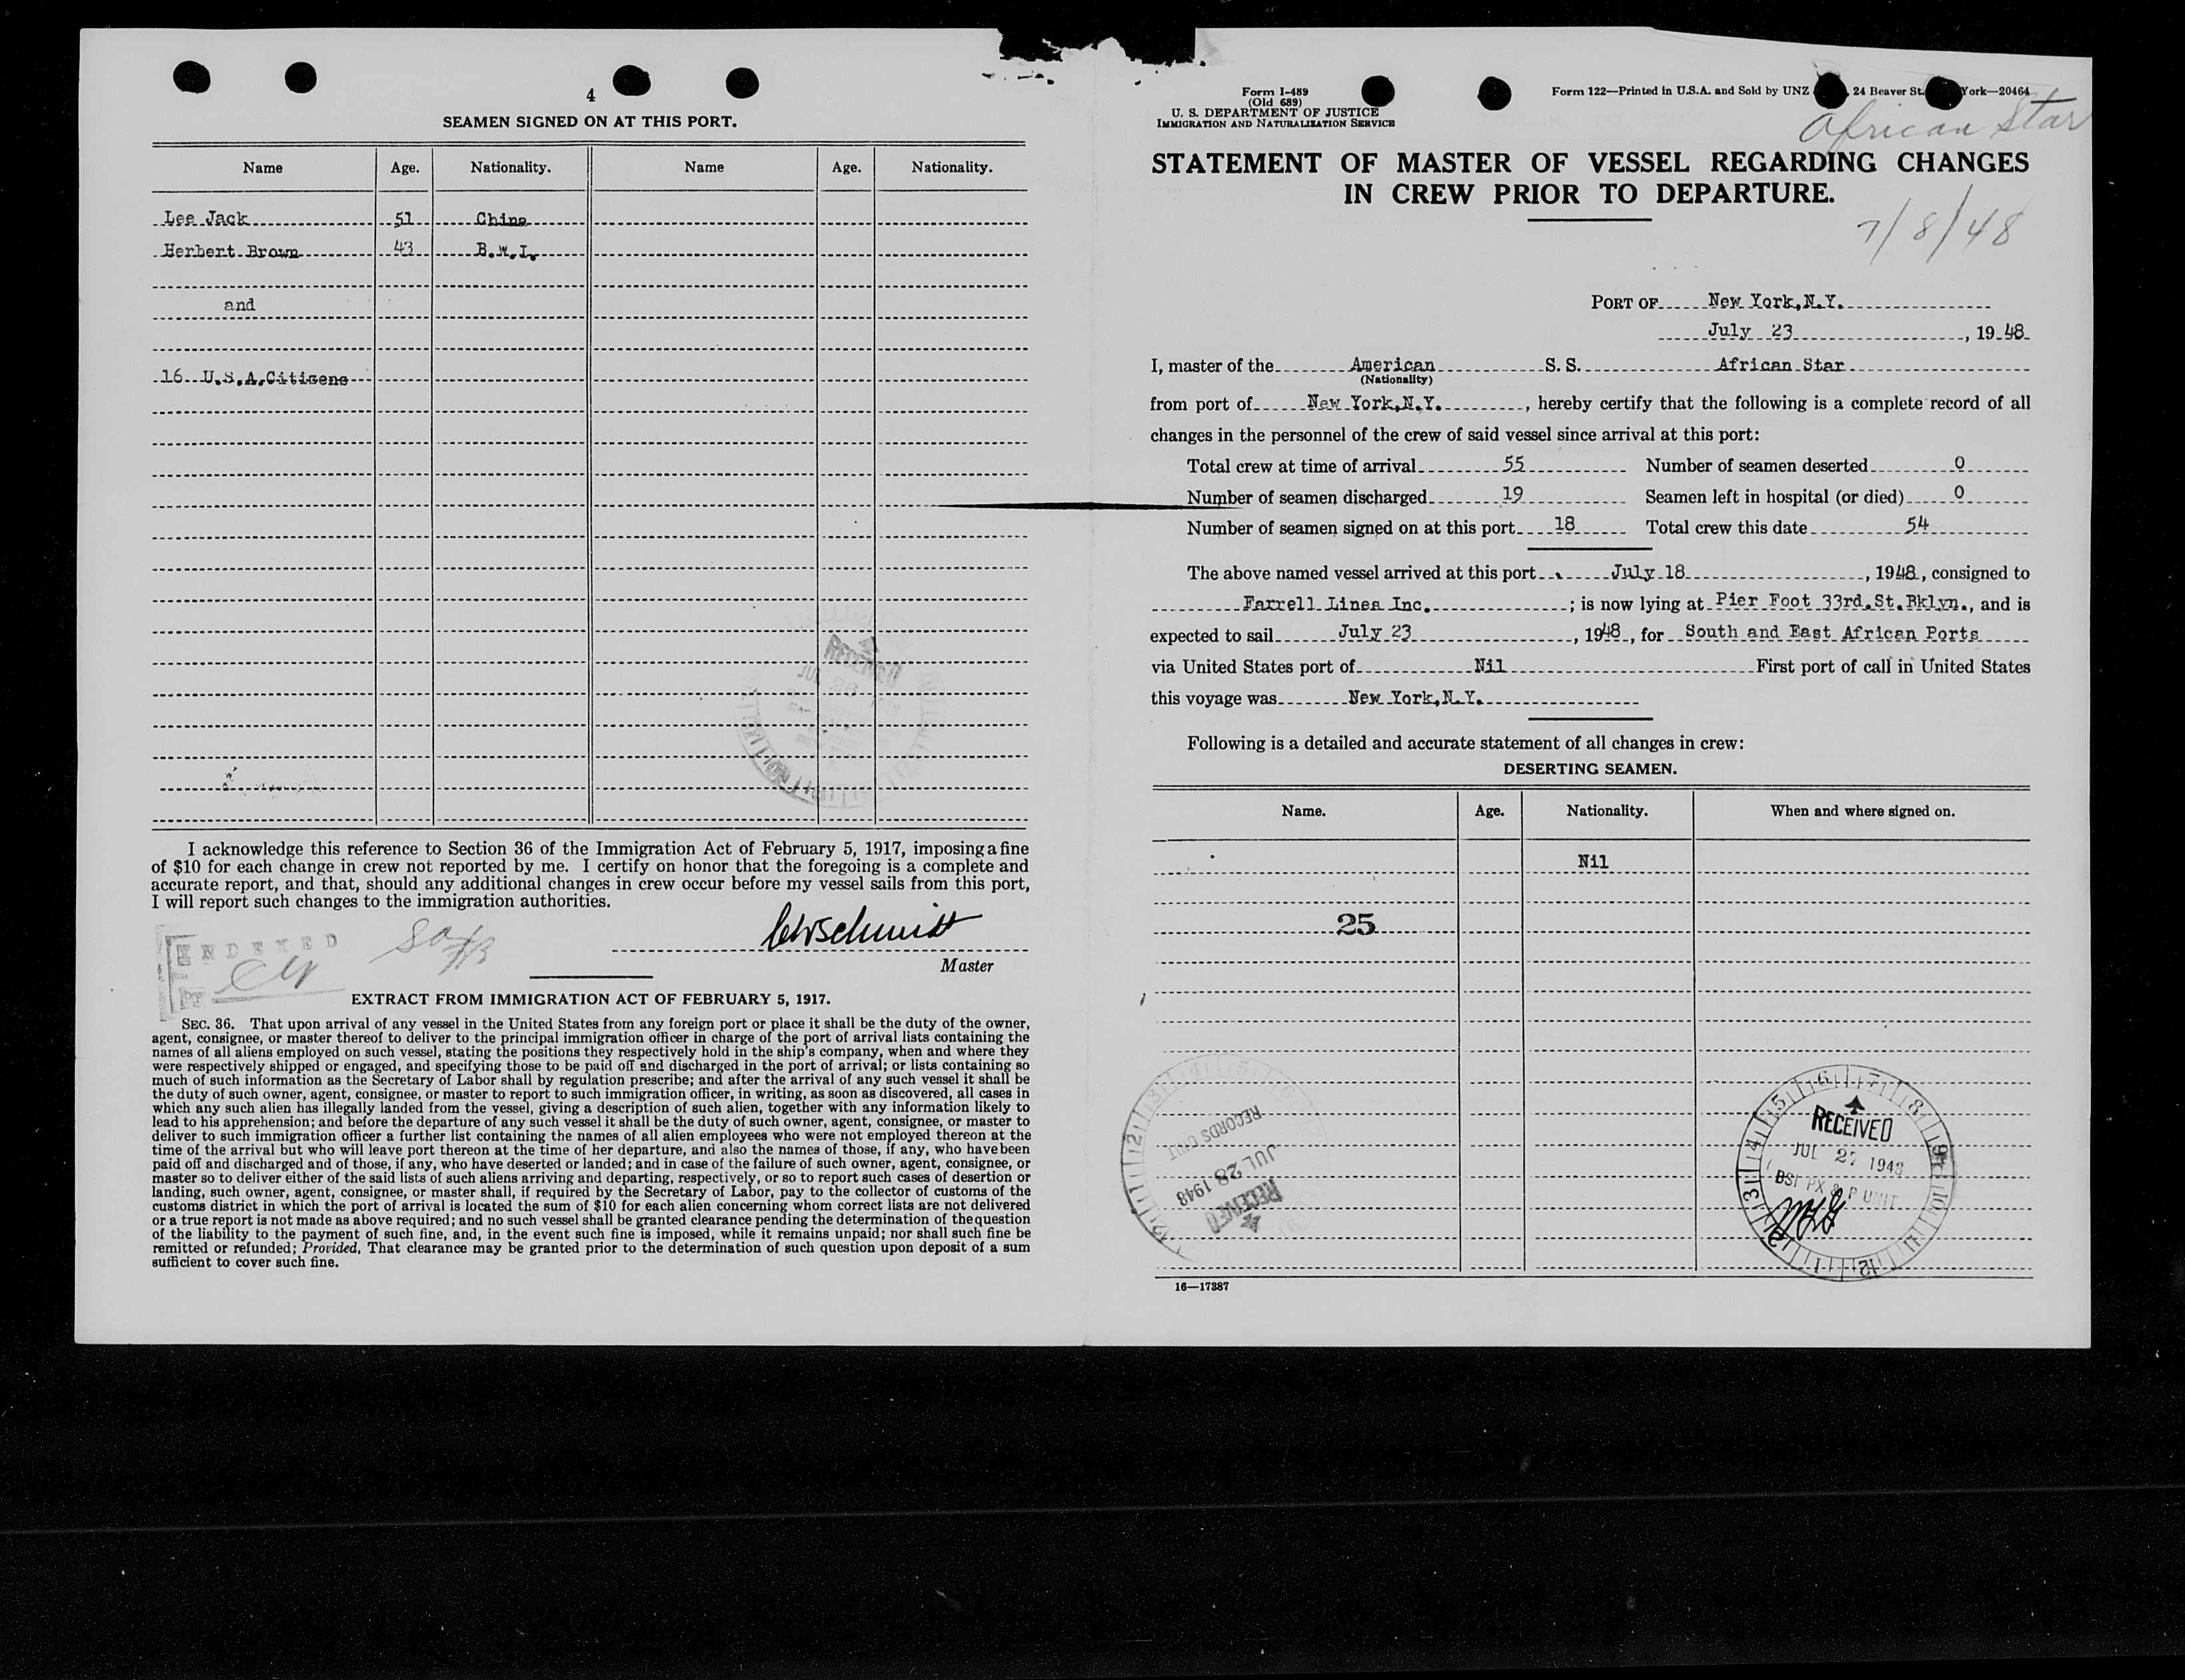 4
SEAMEN SIGNED ON AT THIS PORT.
Name Age. Nationality. Name Age. Nationality.
Lee Jack 51 China
Herbert Brown 43 B.W.I.
and
16 U.S.A.Citizens
RECEIVED
JUL 28
I acknowledge this reference to Section 36 of the Immigration Act of February 5, 1917, imposing a fine
of $10 for each change in crew not reported by me. I certify on honor that the foregoing is a complete and
accurate report, and that, should any additional changes in crew occur before my vessel sails from this port,
I will report such changes to the immigration authorities.
INDEXED
CWSchmidt
Master
EXTRACT FROM IMMIGRATION ACT OF FEBRUARY 5, 1917.
SEC. 36. That upon arrival of any vessel in the United States from any foreign port or place it shall be the duty of the owner,
agent, consignee, or master thereof to deliver to the principal immigration officer in charge of the port of arrival lists containing the
names of all aliens employed on such vessel, stating the positions they respectively hold in the ship's company, when and where they
were respectively shipped or engaged, and specifying those to be paid off and discharged in the port of arrival; or lists containing so
much of such information as the Secretary of Labor shall by regulation prescribe; and after the arrival of any such vessel it shall be
the duty of such owner, agent, consignee, or master to report to such immigration officer, in writing, as soon as discovered, all cases in
which any such alien has illegally landed from the vessel, giving a description of such alien, together with any information likely to
lead to his apprehension; and before the departure of any such vessel it shall be the duty of such owner, agent, consignee, or master to
deliver to such immigration officer a further list containing the names of all alien employees who were not employed thereon at the
time of the arrival but who will leave port thereon at the time of her departure, and also the names of those, if any, who have been
paid off and discharged and of those, if any, who have deserted or landed; and in case of the failure of such owner, agent, consignee, or
master so to deliver either of the said lists of such aliens arriving and departing, respectively, or so to report such cases of desertion or
landing, such owner, agent, consignee, or master shall, if required by the Secretary of Labor, pay to the collector of customs of the
customs district in which the port of arrival is located the sum of $10 for each alien concerning whom correct lists are not delivered
or a true report is not made as above required; and no such vessel shall be granted clearance pending the determination of the question
of the liability to the payment of such fine, and, in the event such fine is imposed, while it remains unpaid; nor shall such fine be
remitted or refunded; Provided, That clearance may be granted prior to the determination of such question upon deposit of a sum
sufficient to cover such fine.
Form I-489
(Old 689)
U. S. DEPARTMENT OF JUSTICE
IMMIGRATION AND NATURALIZATION SERVICE
Form 122—Printed in U.S.A. and Sold by UNZ , 24 Beaver St. York—20464
African Star
STATEMENT OF MASTER OF VESSEL REGARDING CHANGES
IN CREW PRIOR TO DEPARTURE.
7/8/48
PORT OF New York,N.Y.
July 23, 1948
I, master of the American S. S. African Star
(Nationality)
from port of New York,N.Y., hereby certify that the following is a complete record of all
changes in the personnel of the crew of said vessel since arrival at this port:
Total crew at time of arrival 55 Number of seamen deserted 0
Number of seamen discharged 19 Seamen left in hospital (or died) 0
Number of seamen signed on at this port 18 Total crew this date 54
The above named vessel arrived at this port July 18, 1948, consigned to
Farrell Lines Inc.; is now lying at Pier Foot 33rd.St.Bklyn., and is
expected to sail July 23, 1948, for South and East African Ports
via United States port of Nil First port of call in United States
this voyage was New York,N.Y.
Following is a detailed and accurate statement of all changes in crew:
DESERTING SEAMEN.
Name. Age. Nationality. When and where signed on.
Nil
25
RECORDS UNIT
JUL 28 1948
RECEIVED
RECEIVED
JUL 27 1948
BSI PX & P UNIT
16—17387